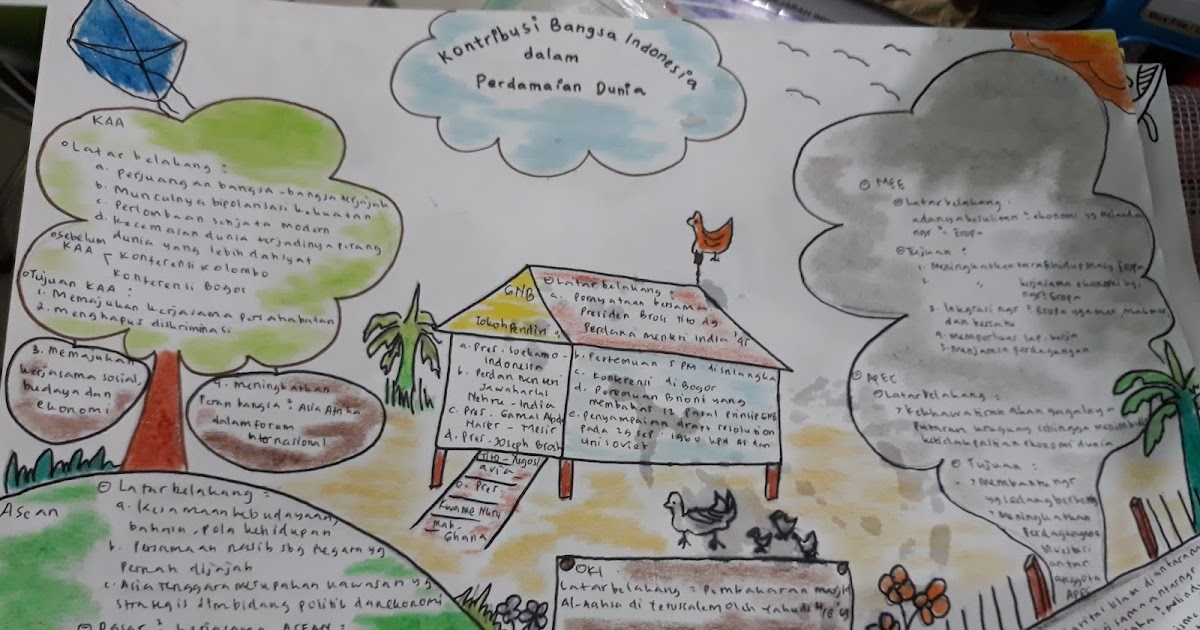 Kontribusi Bangsa Indonesia
dalam
Perdamaian Dunia
KAA
Latar belakang :
a. Perjuangan bangsa-bangsa terjajah
b. Munculnya bipolarisasi kekuatan
c. Perlombaan senjata modern
d. Kecemasan dunia terjadinya perang
dunia yang lebih dahsyat
Sebelum
KAA
Konferensi Kolombo
Konferensi Bogor
Tujuan KAA :
1. Memajukan kerjasama persahabatan
2. menghapus diskriminasi
3. Memajukan
kerjasama sosial,
budaya dan
ekonomi
4. meningkatkan
Peran bangsa² Asia Afrika
dalam forum
Internasional
GNB
Tokoh Pendiri :
a. Pres. Soekarno -
Indonesia
b. Perdana Menteri
Jawaharlal
Nehru - India
c. Pres. Gamal Abdul
Naser - Mesir
d. Pres. Joseph Broz
Tito - Yugosl
avia
e. Pres.
Kwame Nkru
mah -
Ghana
Latar belakang :
a. Pernyataan bersama
Presiden Broz Tito dg
Perdana menteri India '45
b. Pertemuan 5 PM di Srilangka
c. Konferensi di Bogor
d. Pertemuan Brioni yang
membahas 12 Pasal Prinsip GNB
e. Penyampaian draft resolution
pada 29 sep - 1960 kpd AS dan
Uni Soviet
MEE
Latar belakang :
adanya kesulitan² ekonomi yg melanda
ngr² Eropa
Tujuan :
1. Meningkatkan taraf hidup masy Eropa
2. " kerjasama ekonomi
ngr² Eropa
3. Integrasi ngr² Eropa yg aman, makmur,
dan bersatu
4. memperluas lap. kerja
5. Menjamin perdagangan
APEC
Latar belakang :
> Kekhawatiran akan gagalnya
Putaran Uruguay sehingga menimbulk
ketidakpastian ekonomi dunia
Tujuan :
> Membantu ngr
yg sedang berkemb
> Meningkatkan
Perdagangan
investasi
antar
anggota
APEC
Asean
Latar belakang :
a. Kesamaan kebudayaan,
bahasa, pola kehidupan
b. Persamaan nasib sbg negara yg
Pernah dijajah
c. Asia Tenggara merupakan kawasan yg
strategis di bidang politik dan ekonomi
Dasar² kerjasama ASEAN :
OKI
Latar belakang : Pembakaran masjid
Al-Aqsa di Yerussalem oleh Yahudi